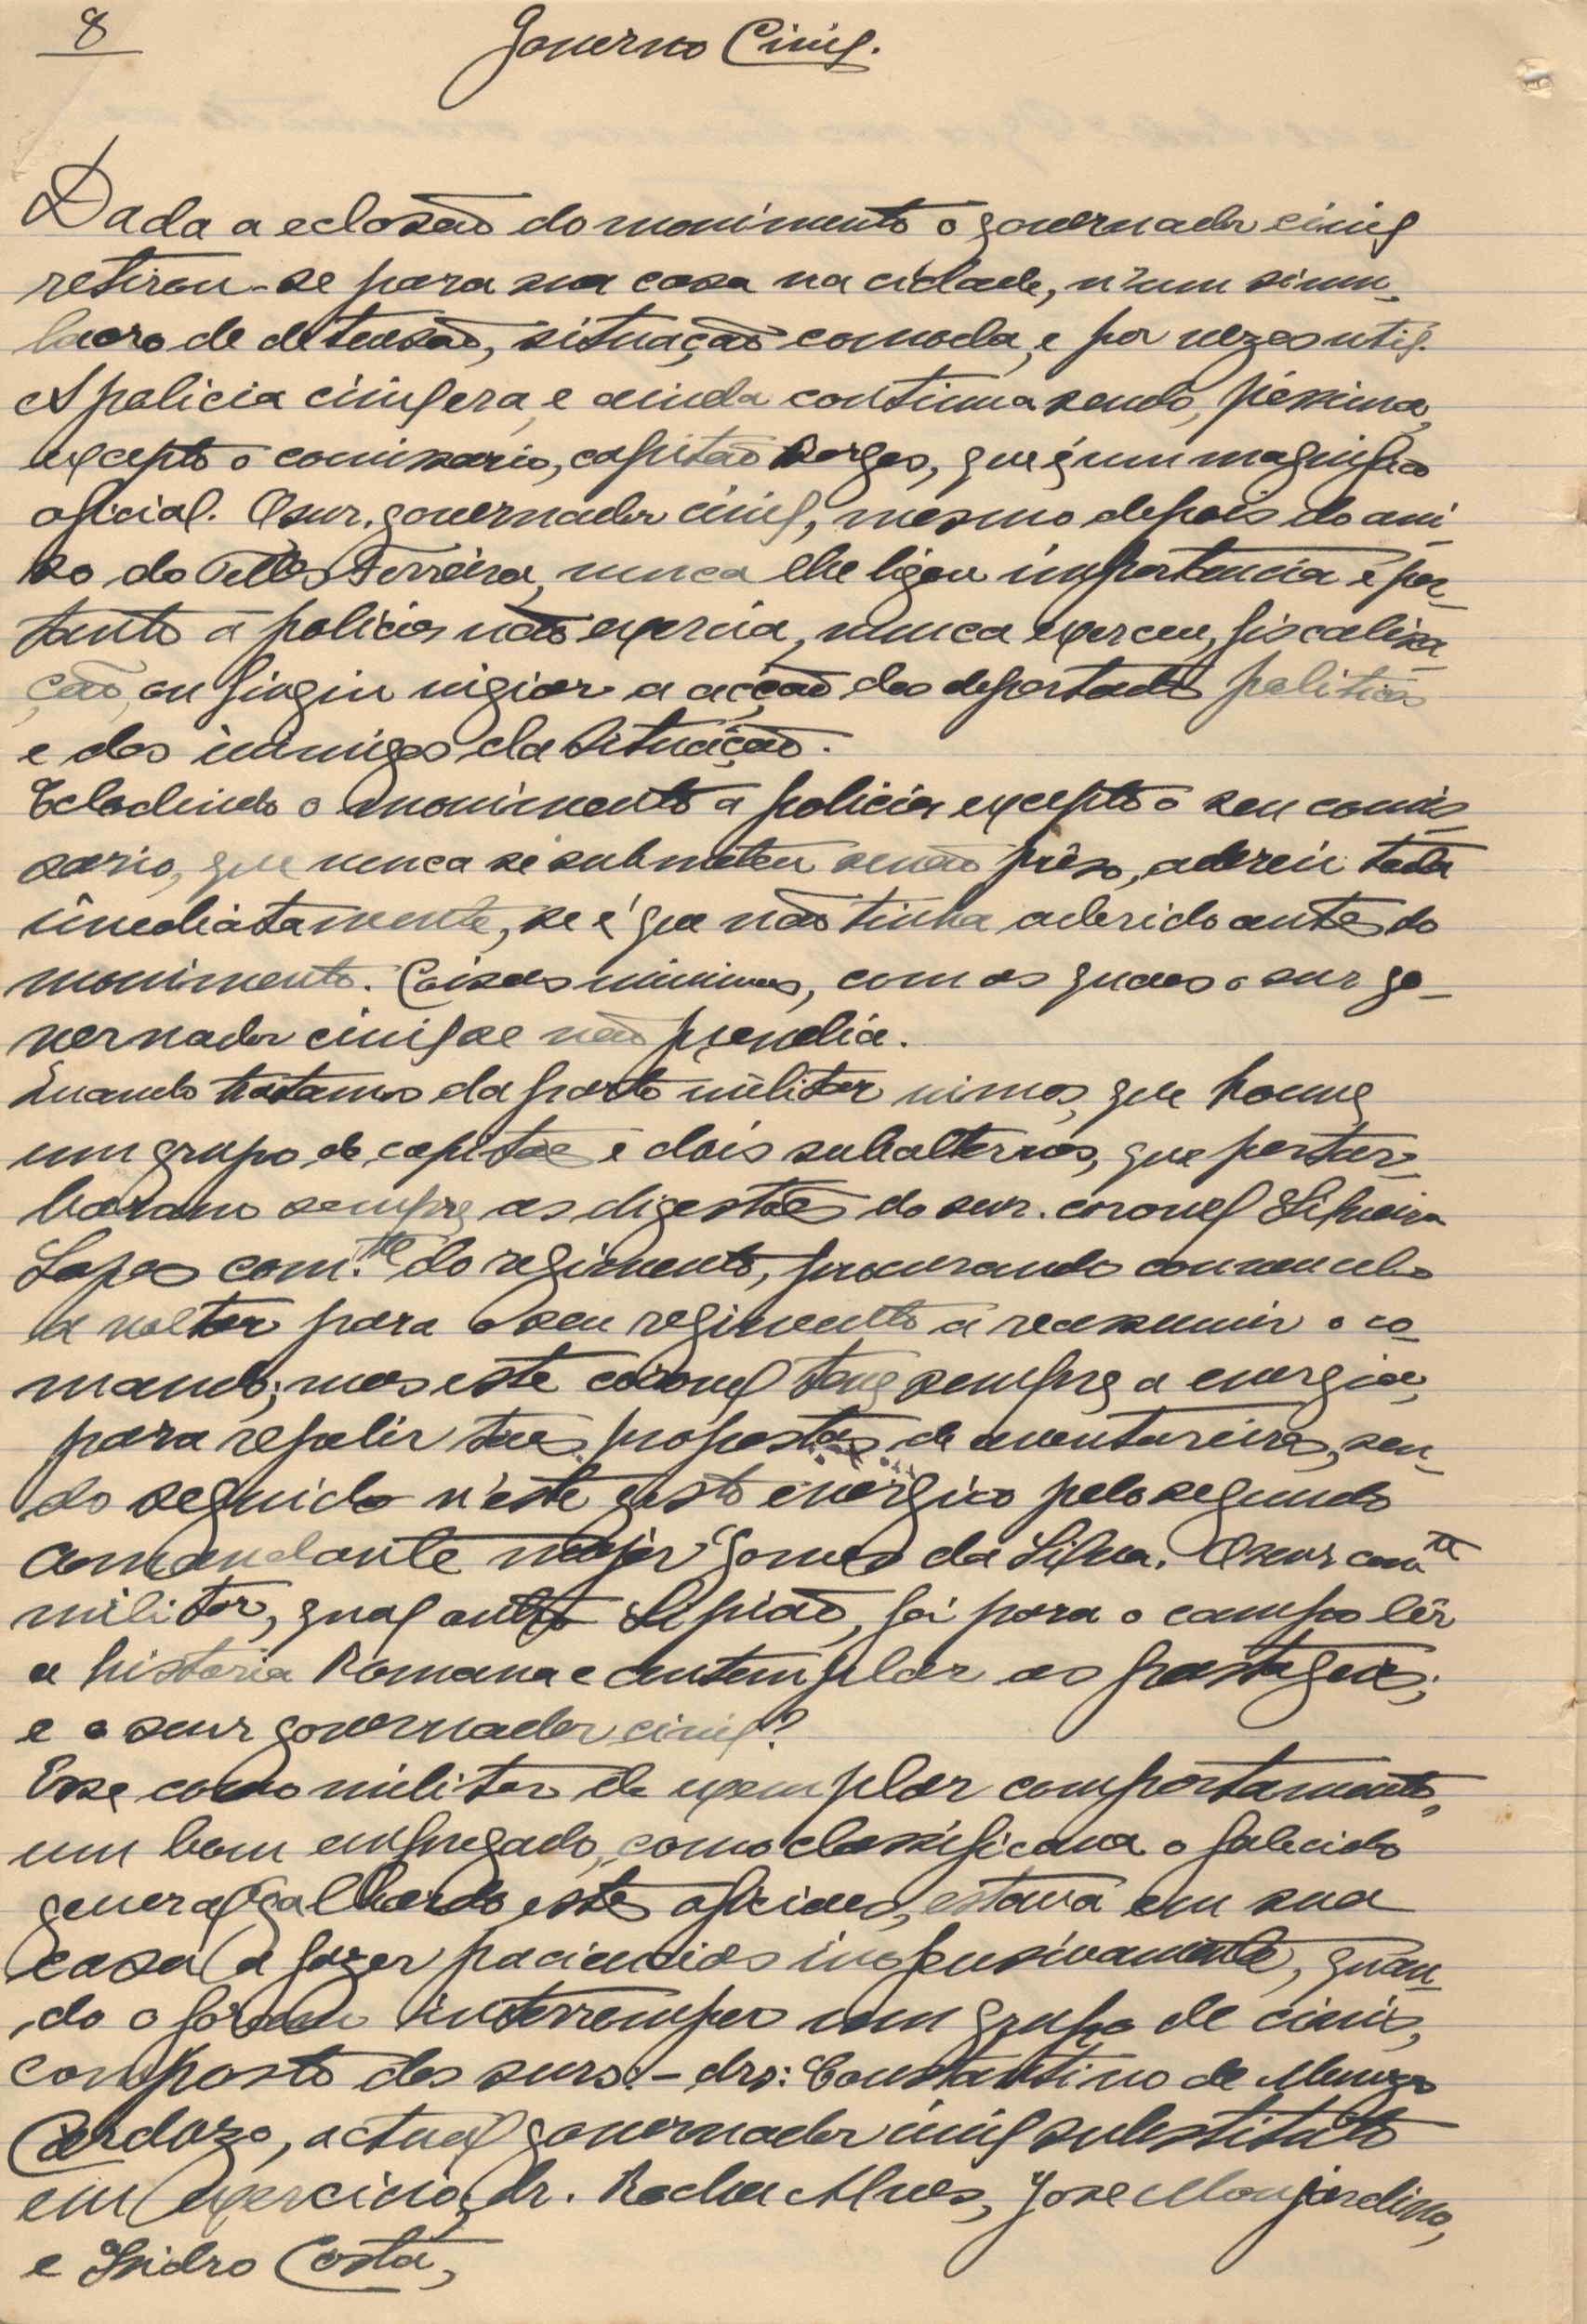 8
Governo Civil.
Dada a eclosão do movimento o governador civil
retirou-se para sua casa na cidade, n'um simu-
lacro de detensão, situação comoda, e por vezes util.
A policia civil era, e ainda continua sendo, péssima,
excepto o comissario, capitão Borges, que é um magnifico
oficial. O snr. governador civil, mesmo depois do avi-
so do Telles Ferreira, nunca lhe ligou importancia e por-
tanto a policia não exercia, nunca exerceu, fiscalisa-
ção, ou fingiu vigiar a acção dos deportados politicos
e dos inimigos da Situação.
Eclodindo o movimento a policia excepto o seu comis-
sario, que nunca se submeteu senão prêso, aderiu toda
imediatamente, se é que não tinha aderido antes do
movimento. Coisas minimas, com as quaes o snr go-
vernador civil se não prendia.
Quando tratamos da parte militar vimos, que houve
um grupo de capitães e dois subalternos, que pertur-
baram sempre as digestões do snr. coronel Silveira
Lopes com.te do regimento, procurando convence-lo
a voltar para o seu regimento a reassumir o co-
mando; mas este coronel teve sempre a energia,
para repelir taes propostas de aventureiros, sen-
do seguido n'este gesto energico pelo segundo
comandante major Gomes da Silva. O snr com.te
militar, qual outro Sipião, foi para o campo lêr
a historia Romana e contemplar as pastagens;
e o snr governador civil?
Esse como militar de exemplar comportamento,
um bom empregado, como classificava o falecido
general Galhardo estes oficiaes, estava em sua
casa a fazer paciencias inofensivamente, quan-
do o foram interromper um grupo de civis,
composto dos snrs: - drs: Constantino de Menezes
Cardozo, actual governador civil substituto
em exercicio, dr. Rocha Alves, José Monjardino,
e Isidro Costa,